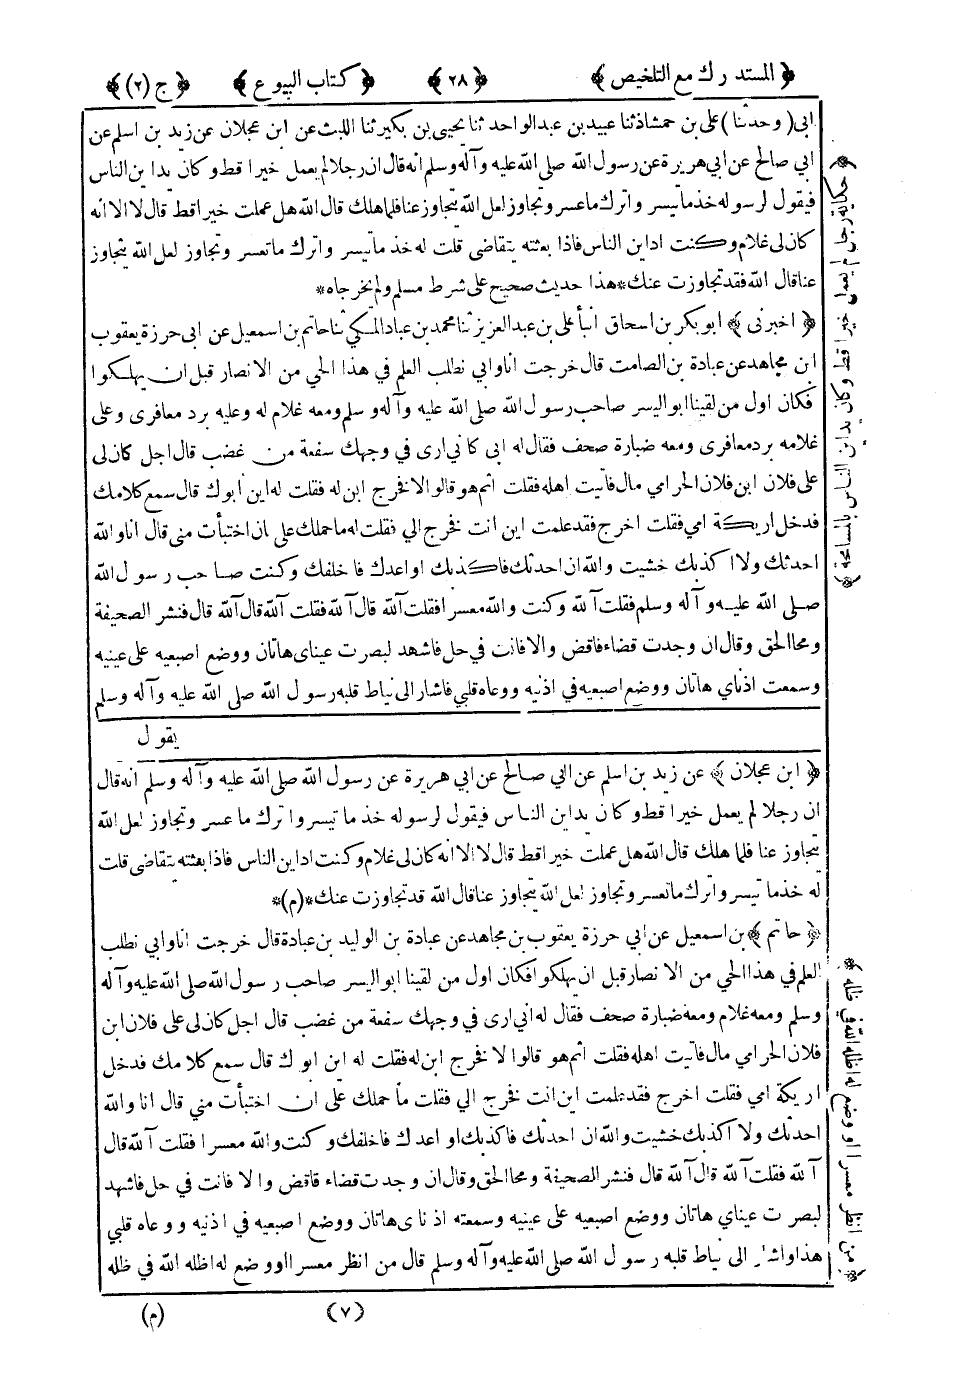 ﴿ المستدرك مع التلخيص ﴾ ﴿ ٢٨ ﴾ ﴿ كتاب البيوع ﴾ ﴿ ج (٢) ﴾
ابى (وحدثنا) على بن حمشاذ ثنا عبيد بن عبد الواحد ثنا يحيى بن بكير ثنا الليث عن ابن عجلان عن زيد بن اسلم عن
ابي صالح عن ابي هريرة عن رسول الله صلى الله عليه وآله وسلم انه قال ان رجلا لم يعمل خيرا قط وكان يداين الناس
فيقول لرسوله خذ ما تيسر واترك ما عسر وتجاوز لعل الله يتجاوز عنا فلما هلك قال الله هل عملت خيرا قط قال لا الا انه
كان لى غلام وكنت اداين الناس فاذا بعثته يتقاضى قلت له خذ ما تيسر واترك ما تعسر وتجاوز لعل الله يتجاوز
عنا قال الله فقد تجاوزت عنك * هذا حديث صحيح على شرط مسلم ولم يخرجاه *
﴿ اخبرنى ﴾ ابوبكر بن اسحاق انبأ على بن عبد العزيز ثنا محمد بن عباد المكي ثنا حاتم بن اسمعيل عن ابى حرزة يعقوب
ابن مجاهد عن عبادة بن الصامت قال خرجت انا وابي نطلب العلم في هذا الحي من الانصار قبل ان يهلكوا
فكان اول من لقينا ابو اليسر صاحب رسول الله صلى الله عليه وآله وسلم ومعه غلام له وعليه برد معافرى وعلى
غلامه برد معافرى ومعه ضبارة صحف فقال له ابى كاني ارى في وجهك سفعة من غضب قال اجل كان لى
على فلان ابن فلان الحرامي مال فاتيت اهله فقلت اثم هو قالوا لا فخرج ابن له فقلت له اين ابوك قال سمع كلامك
فدخل اريكة امي فقلت اخرج فقد علمت اين انت فخرج الي فقلت له ما حملك على ان اختبأت منى قال انا والله
احدثك ولا اكذبك خشيت والله ان احدثك فاكذبك او اعدك فاخلفك وكنت صاحب رسول الله
صلى الله عليه وآله وسلم فقلت آلله وكنت والله معسرا فقلت آلله قال آلله فقلت آلله قال آلله قال فنشر الصحيفة
ومحا الحق وقال ان وجدت قضاء فاقض والا فانت في حل فاشهد لبصرت عيناى هاتان ووضع اصبعيه على عينيه
وسمعت اذناي هاتان ووضع اصبعيه في اذنيه ووعاه قلبي فاشار الى نياط قلبه رسول الله صلى الله عليه وآله وسلم
يقول
﴿ ابن عجلان ﴾ عن زيد بن اسلم عن ابي صالح عن ابي هريرة عن رسول الله صلى الله عليه وآله وسلم انه قال
ان رجلا لم يعمل خيرا قط وكان يداين الناس فيقول لرسوله خذ ما تيسر واترك ما عسر وتجاوز لعل الله
يتجاوز عنا فلما هلك قال الله هل عملت خيرا قط قال لا الا انه كان لى غلام وكنت اداين الناس فاذا بعثته يتقاضى قلت
له خذ ما تيسر واترك ما تعسر وتجاوز لعل الله يتجاوز عنا قال الله قد تجاوزت عنك * (م) *
﴿ حاتم ﴾ بن اسمعيل عن ابي حرزة يعقوب بن مجاهد عن عبادة بن الوليد بن عبادة قال خرجت انا وابي نطلب
العلم في هذا الحي من الانصار قبل ان يهلكوا فكان اول من لقينا ابو اليسر صاحب رسول الله صلى الله عليه وآله
وسلم ومعه غلام ومعه ضبارة صحف فقال له انى ارى في وجهك سفعة من غضب قال اجل كان لى على فلان ابن
فلان الحرامي مال فاتيت اهله فقلت اثم هو قالوا لا فخرج ابن له فقلت له ابن ابوك قال سمع كلامك فدخل
اريكة امي فقلت اخرج فقد علمت اين انت فخرج الي فقلت ما حملك على ان اختبأت مني قال انا والله
احدثك ولا اكذبك خشيت والله ان احدثك فاكذبك او اعدك فاخلفك وكنت والله معسرا فقلت آلله قال
آلله فقلت آلله قال آلله قال فنشر الصحيفة ومحا الحق وقال ان وجدت قضاء فاقض والا فانت في حل فاشهد
لبصرت عيناي هاتان ووضع اصبعيه على عينيه وسمعته اذناى هاتان ووضع اصبعيه في اذنيه ووعاه قلبي
هذا واشار الى نياط قلبه رسول الله صلى الله عليه وآله وسلم قال من انظر معسرا او وضع له اظله الله في ظله
(٧) (م)
﴿ حكاية رجل لم يعمل خيرا قط وكان يداين الناس بالمسامحة ﴾
﴿ من انظر معسرا او وضع له اظله الله في ظله ﴾